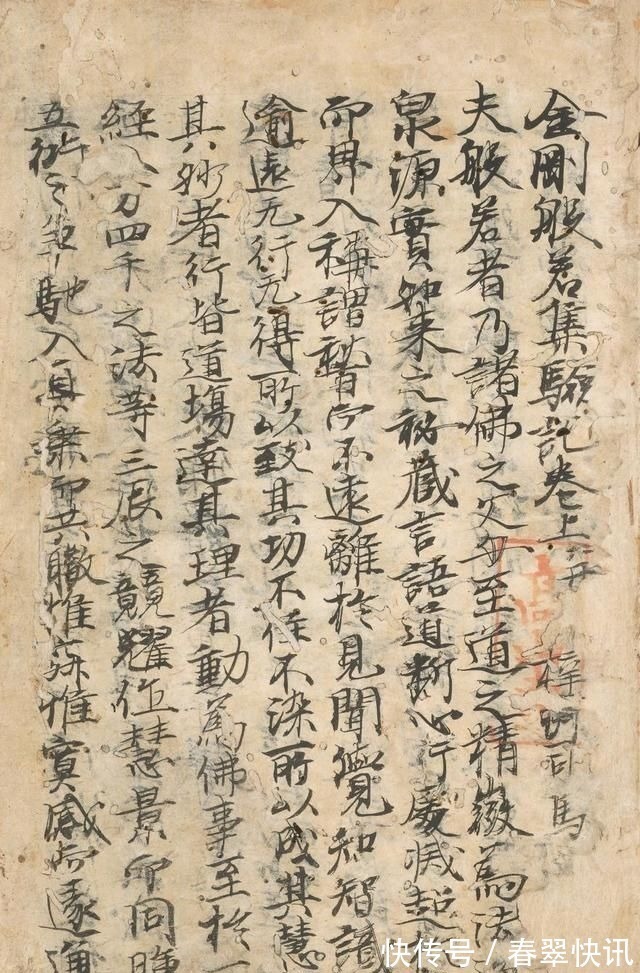 金剛般若集驗記卷上并 梓州司馬
夫般若者乃諸佛之父母至道之精微為法
泉源實如來之秘藏言語道斷心行處滅超
而界入稱謂暫而不遠離於見聞覺知智諳
逾遠无行无得所以致其功不住不染所以成其慧
其妙者行皆道場達其理者動為佛事至於一
經八万四千之法等三辰之競耀位慧景而同
五術之争馳入真乘而共轍惟 惟寞感而遂通
快传号/春翠快讯